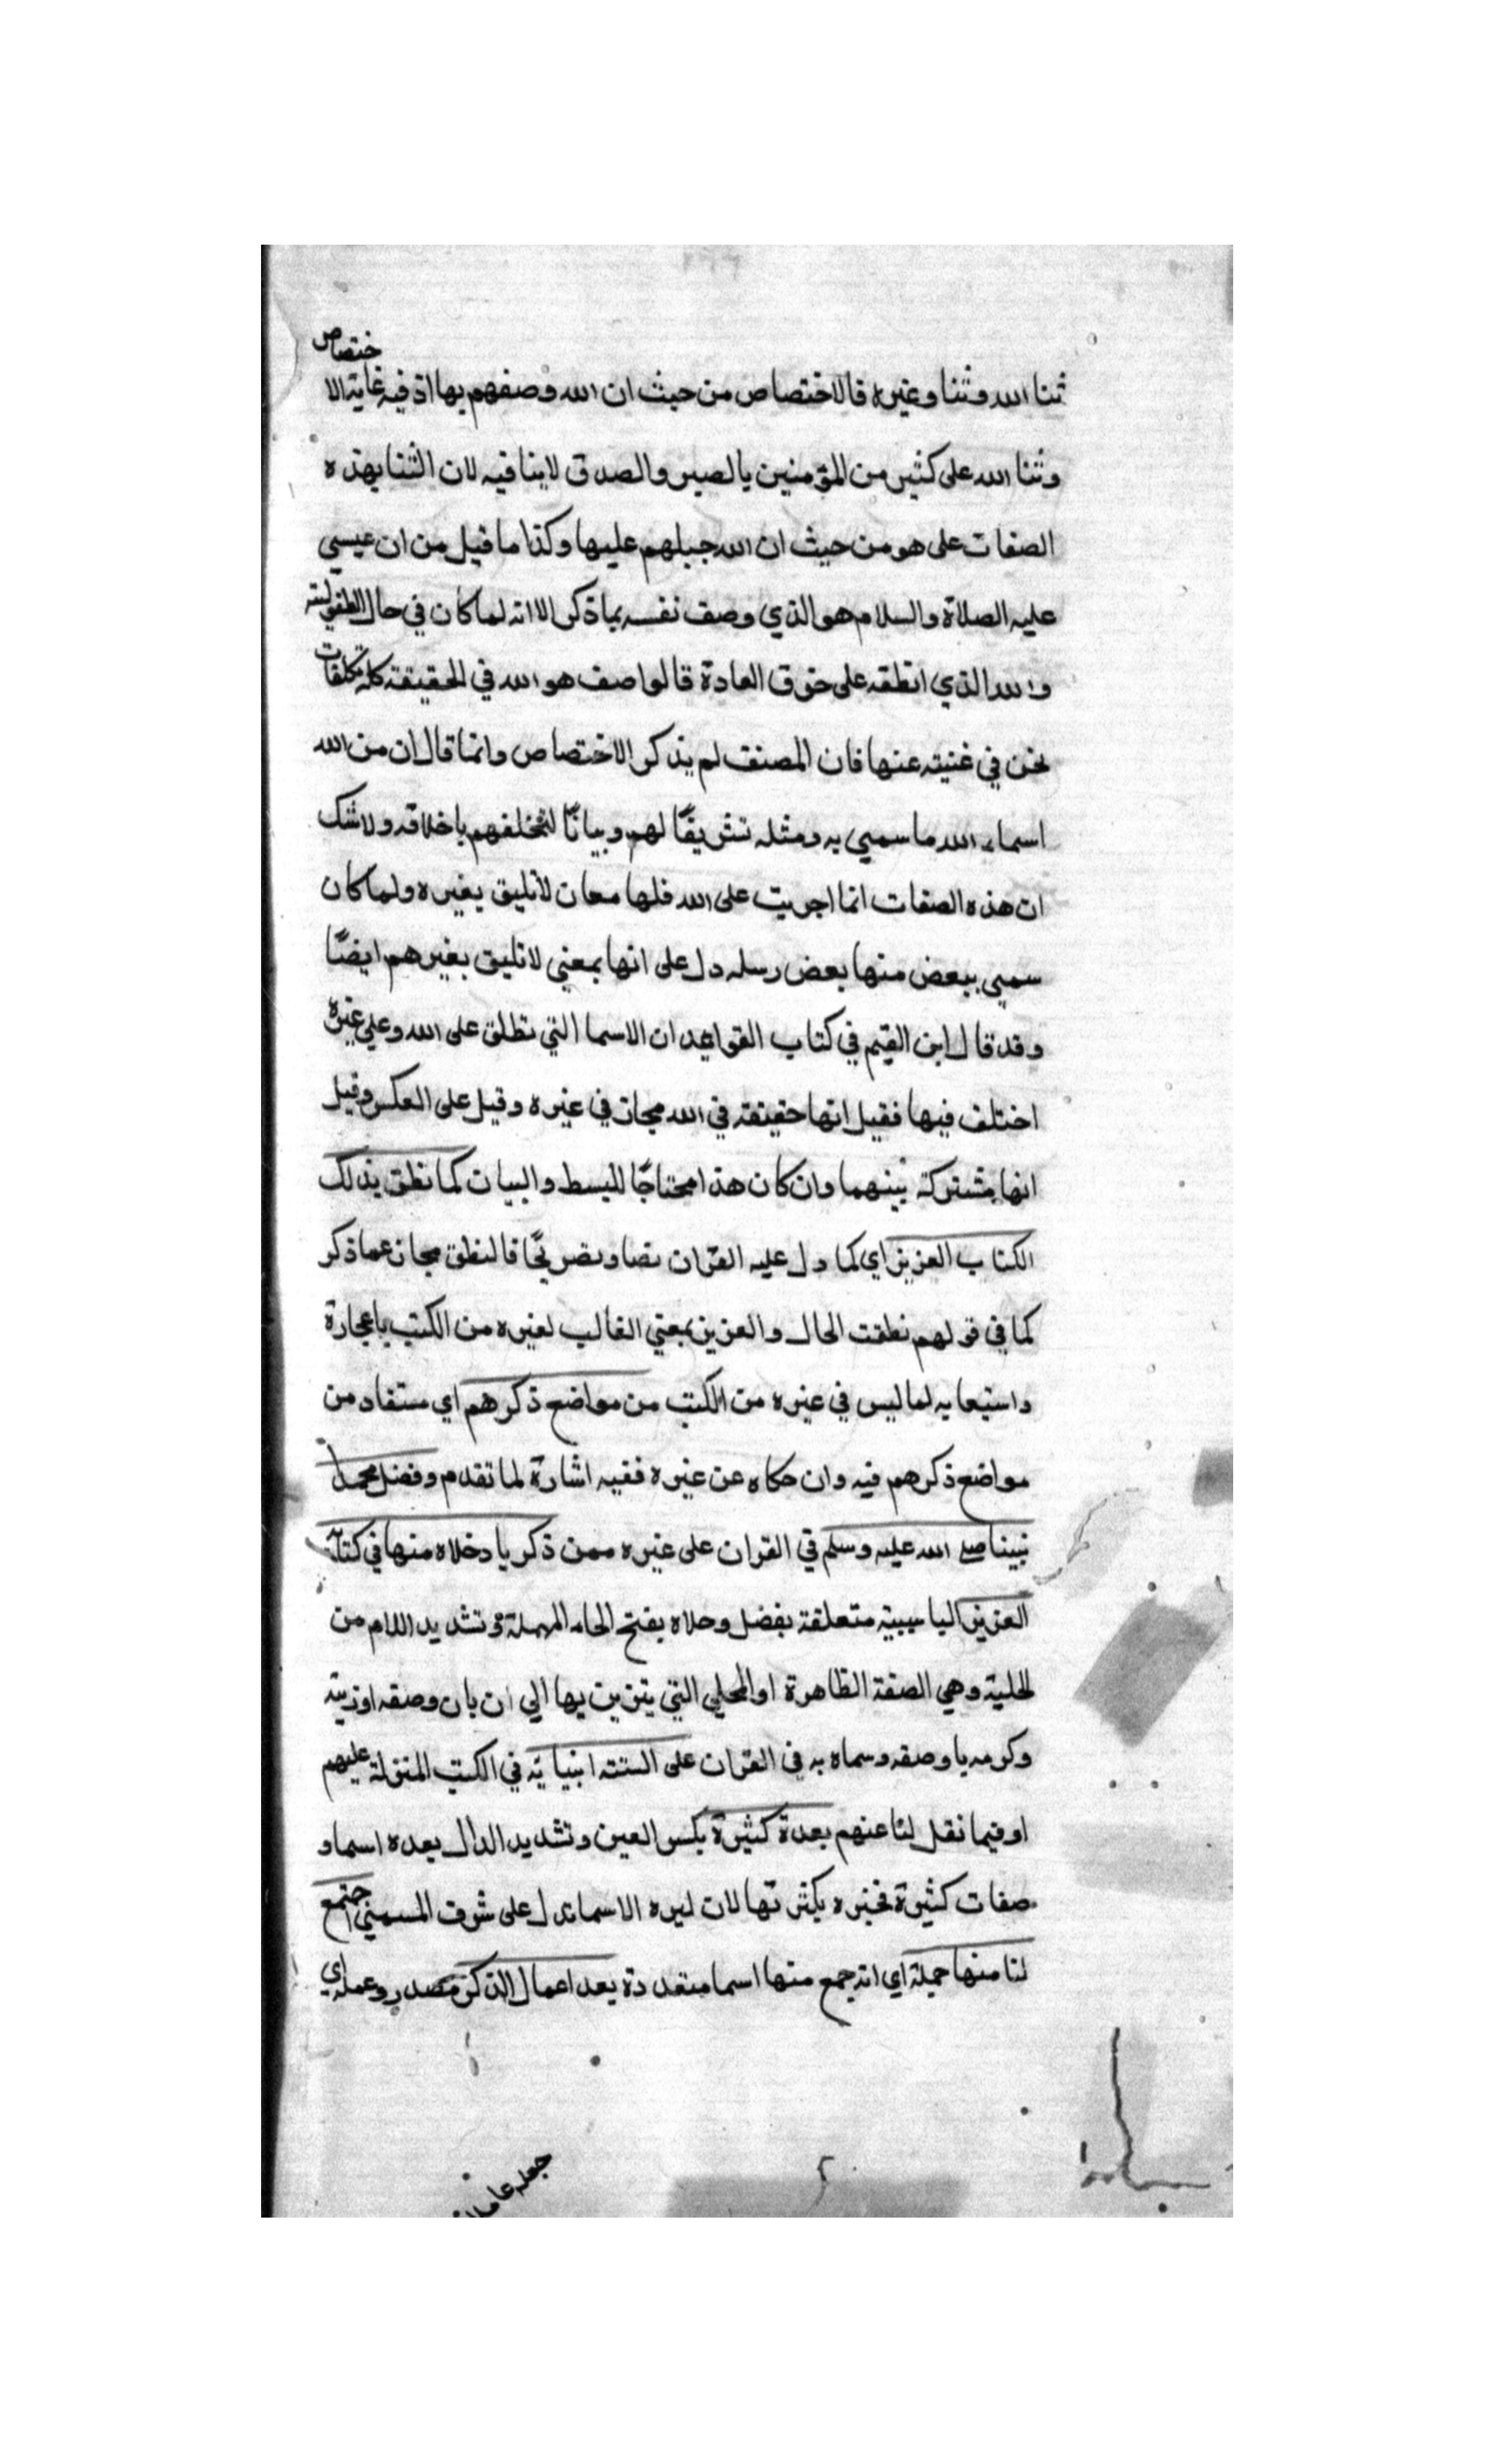 ختصاص
ثنا الله وثنا وغيره فالاختصاص من حيث ان الله وصفهم بها اذ فيه غاية الا
وثنا الله على كثير من المؤمنين بالصبر والصدق لا ينافيه لان الثنا بهذه
الصفات على هو من حيث ان الله جبلهم عليها وكذا ما قيل من ان عيسي
عليه الصلاة والسلام هو الذي وصف نفسه بما ذكر الا انه لما كان في حال الطفولية
والله الذي انطقه على خرق العادة فالواصف هو الله في الحقيقة كله تكلفات
نحن في غنية عنها فان المصنف لم يذكر الاختصاص وانما قال ان من الله
اسماء الله ما سمي به ومثله تشريفًا لهم وبيانًا لتخلقهم باخلاقه ولا شك
ان هذه الصفات انما اجريت على الله فلها معان لا تليق بغيره ولما كان
سمي ببعض منها بعض رسله دل على انها بمعني لا تليق بغيرهم ايضًا
وقد قال ابن القيم في كتاب القواعد ان الاسما التي تطلق على الله وعلي غيره
اختلف فيها فقيل انها حقيقة في الله مجاز في غيره وقيل على العكس وقيل
انها مشتركة بينهما وان كان هذا محتاجًا للبسط والبيان كما نطق بذلك
الكتاب العزيز اي كما دل عليه القران نصا وتصريحًا فالنطق مجاز عما ذكر
كما في قولهم نطقت الحال والعزيز بمعني الغالب لغيره من الكتب باعجازة
واستيعابه لما ليس في غيره من الكتب من مواضع ذكرهم اي مستفاد من
مواضع ذكرهم فيه وان حكاه عن غيره ففيه اشارة لما تقدم وفضل محمدا
نبينا صلى الله عليه وسلم في القران على غيره ممن ذكر با دخلاه منها في كتابه
العزيز البا سببية متعلقة بفضل وحلاه بفتح الحاء المهملة وتشديد اللام من
الحلية وهي الصفة الظاهرة او الحلي التي يتزين بها الي ان بان وصفه او زينه
وكرمه با وصفه وسماه به في القران على السنة انبيائه في الكتب المنزلة عليهم
او فيما نقل لنا عنهم بعدة كثيرة بكسر العين وتشديد الدال بعده اسما و
صفات كثيرة بكثرتها لان الاسما تدل على شرف المسمي اجتمع
لنا منها جملة اي انه جمع منها اسما متعددة بعد اعمال الذكر مصدر وعمله اي
جعله عاملا